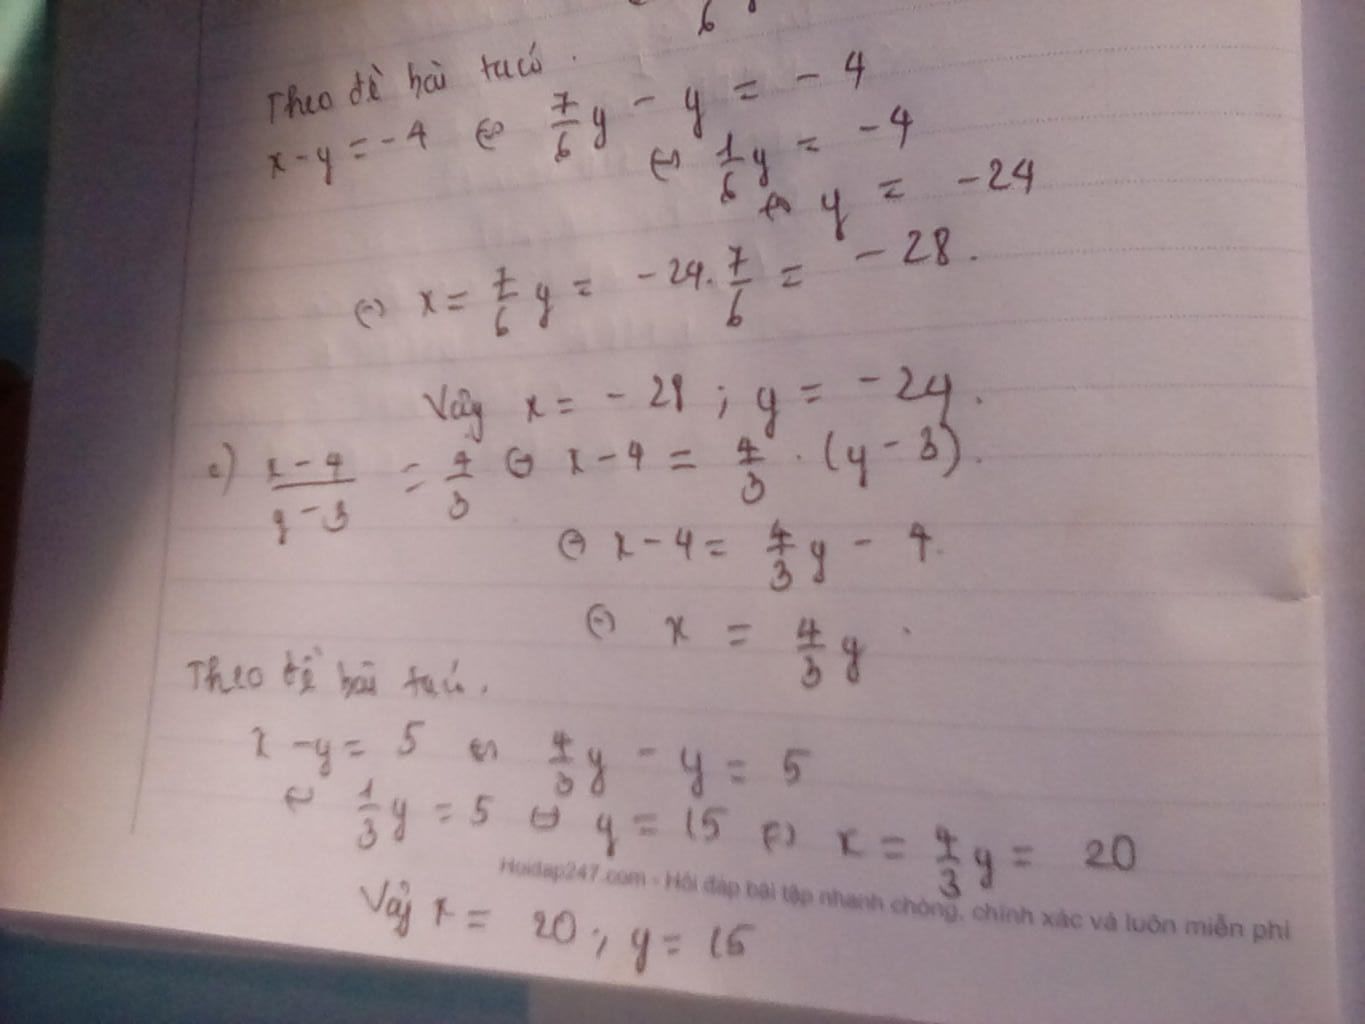 6
Theo đề bài ta có.
x - y = -4 ⇔ 7/6 y - y = -4
⇔ 1/6 y = -4
⇔ y = -24
⇔ x = 7/6 y = -24. 7/6 = -28.
Vậy x = -28 ; y = -24.
c) x-4/y-3 = 4/3 ⇔ x - 4 = 4/3 . (y - 3).
⇔ x - 4 = 4/3 y - 4.
⇔ x = 4/3 y.
Theo đề bài ta có.
x - y = 5 ⇔ 4/3 y - y = 5
⇔ 1/3 y = 5 ⇔ y = 15 ⇔ x = 4/3 y = 20
Hoidap247.com - Hỏi đáp bài tập nhanh chóng, chính xác và luôn miễn phí
Vậy x = 20 ; y = 15